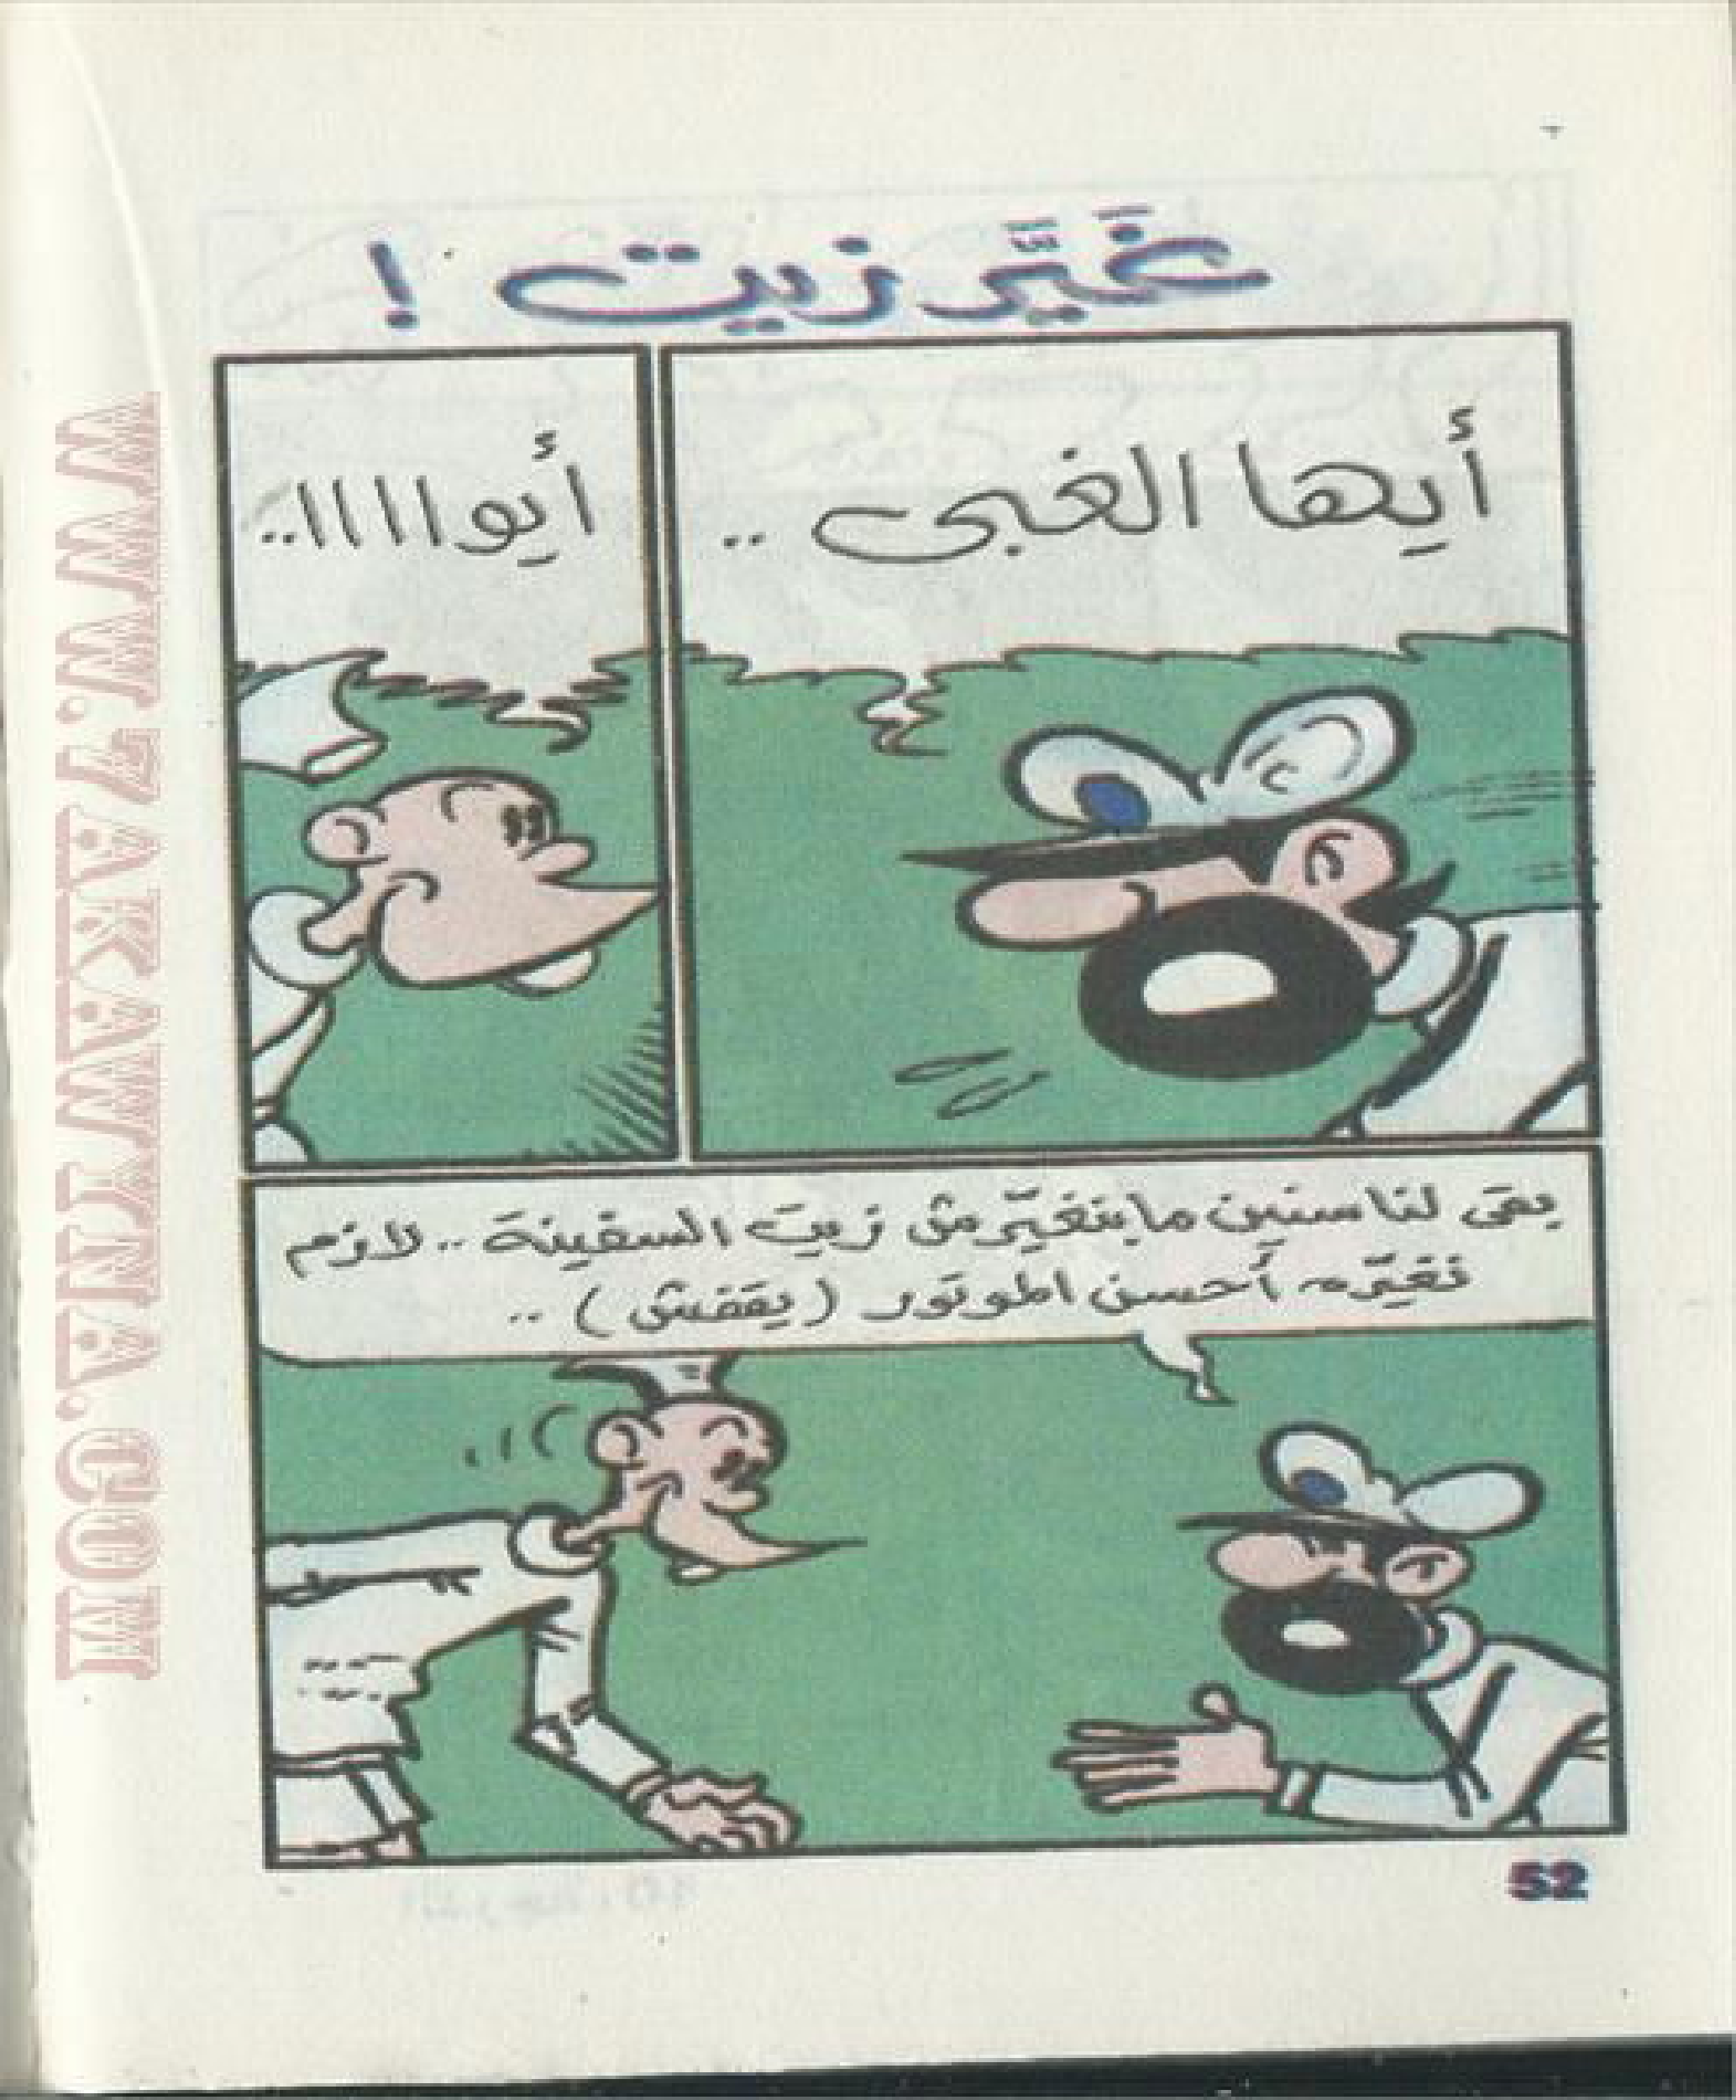 غَيَّر زيت !
أيها الغبى ..
أيواااا..
بقى لنا سنين ما بنغيّرش زيت السفينة .. لازم
نغيّره أحسن الموتور (يقفش) ..
52
WWW.7AKAWTNA.COM